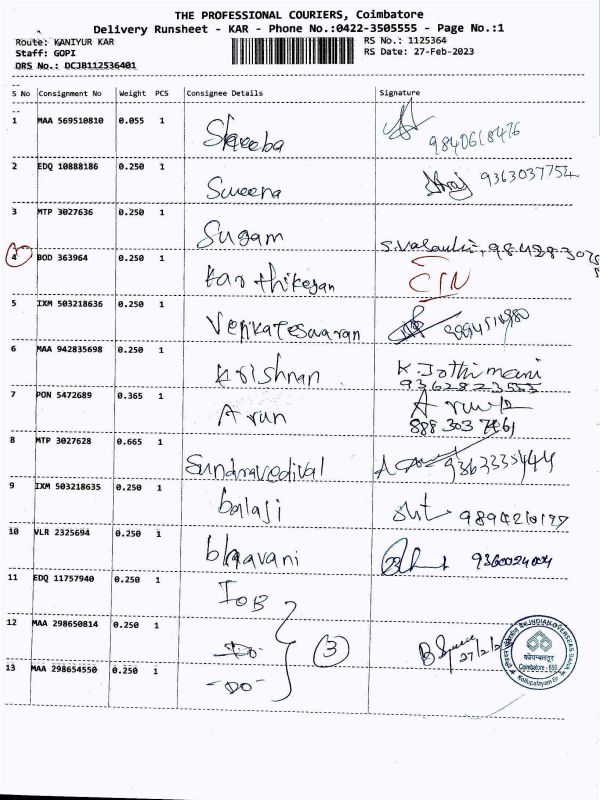 THE PROFESSIONAL COURIERS, Coimbatore
Delivery Runsheet - KAR - Phone No.:0422-3505555 - Page No.:1
Route: KANIYUR KAR RS No.: 1125364
Staff: GOPI RS Date: 27-Feb-2023
DRS No.: DCJB112536401
S No Consignment No Weight PCS Consignee Details Signature
1 MAA 569510810 0.055 1 Sheeba 9840618476
2 EDQ 10888186 0.250 1 Sweena 9363037754
3 MTP 3027636 0.250 1 Sugam
4 BOD 363964 0.250 1 Karthikeyan
5 IXM 503218636 0.250 1 Venkateswaran
6 MAA 942835698 0.250 1 Krishnan K. Jothimani
9362823555
7 PON 5472689 0.365 1 Arun
888 303 7461
8 MTP 3027628 0.665 1 Sundravedival
9 IXM 503218635 0.250 1 balaji
10 VLR 2325694 0.250 1 bhavani 9360024004
11 EDQ 11757940 0.250 1 IOB
12 MAA 298650814 0.250 1 -Do- 3
27/2/2
13 MAA 298654550 0.250 1 -Do-
INDIAN OVERSEAS BANK
कोयम्बत्तूर
Coimbatore - 659